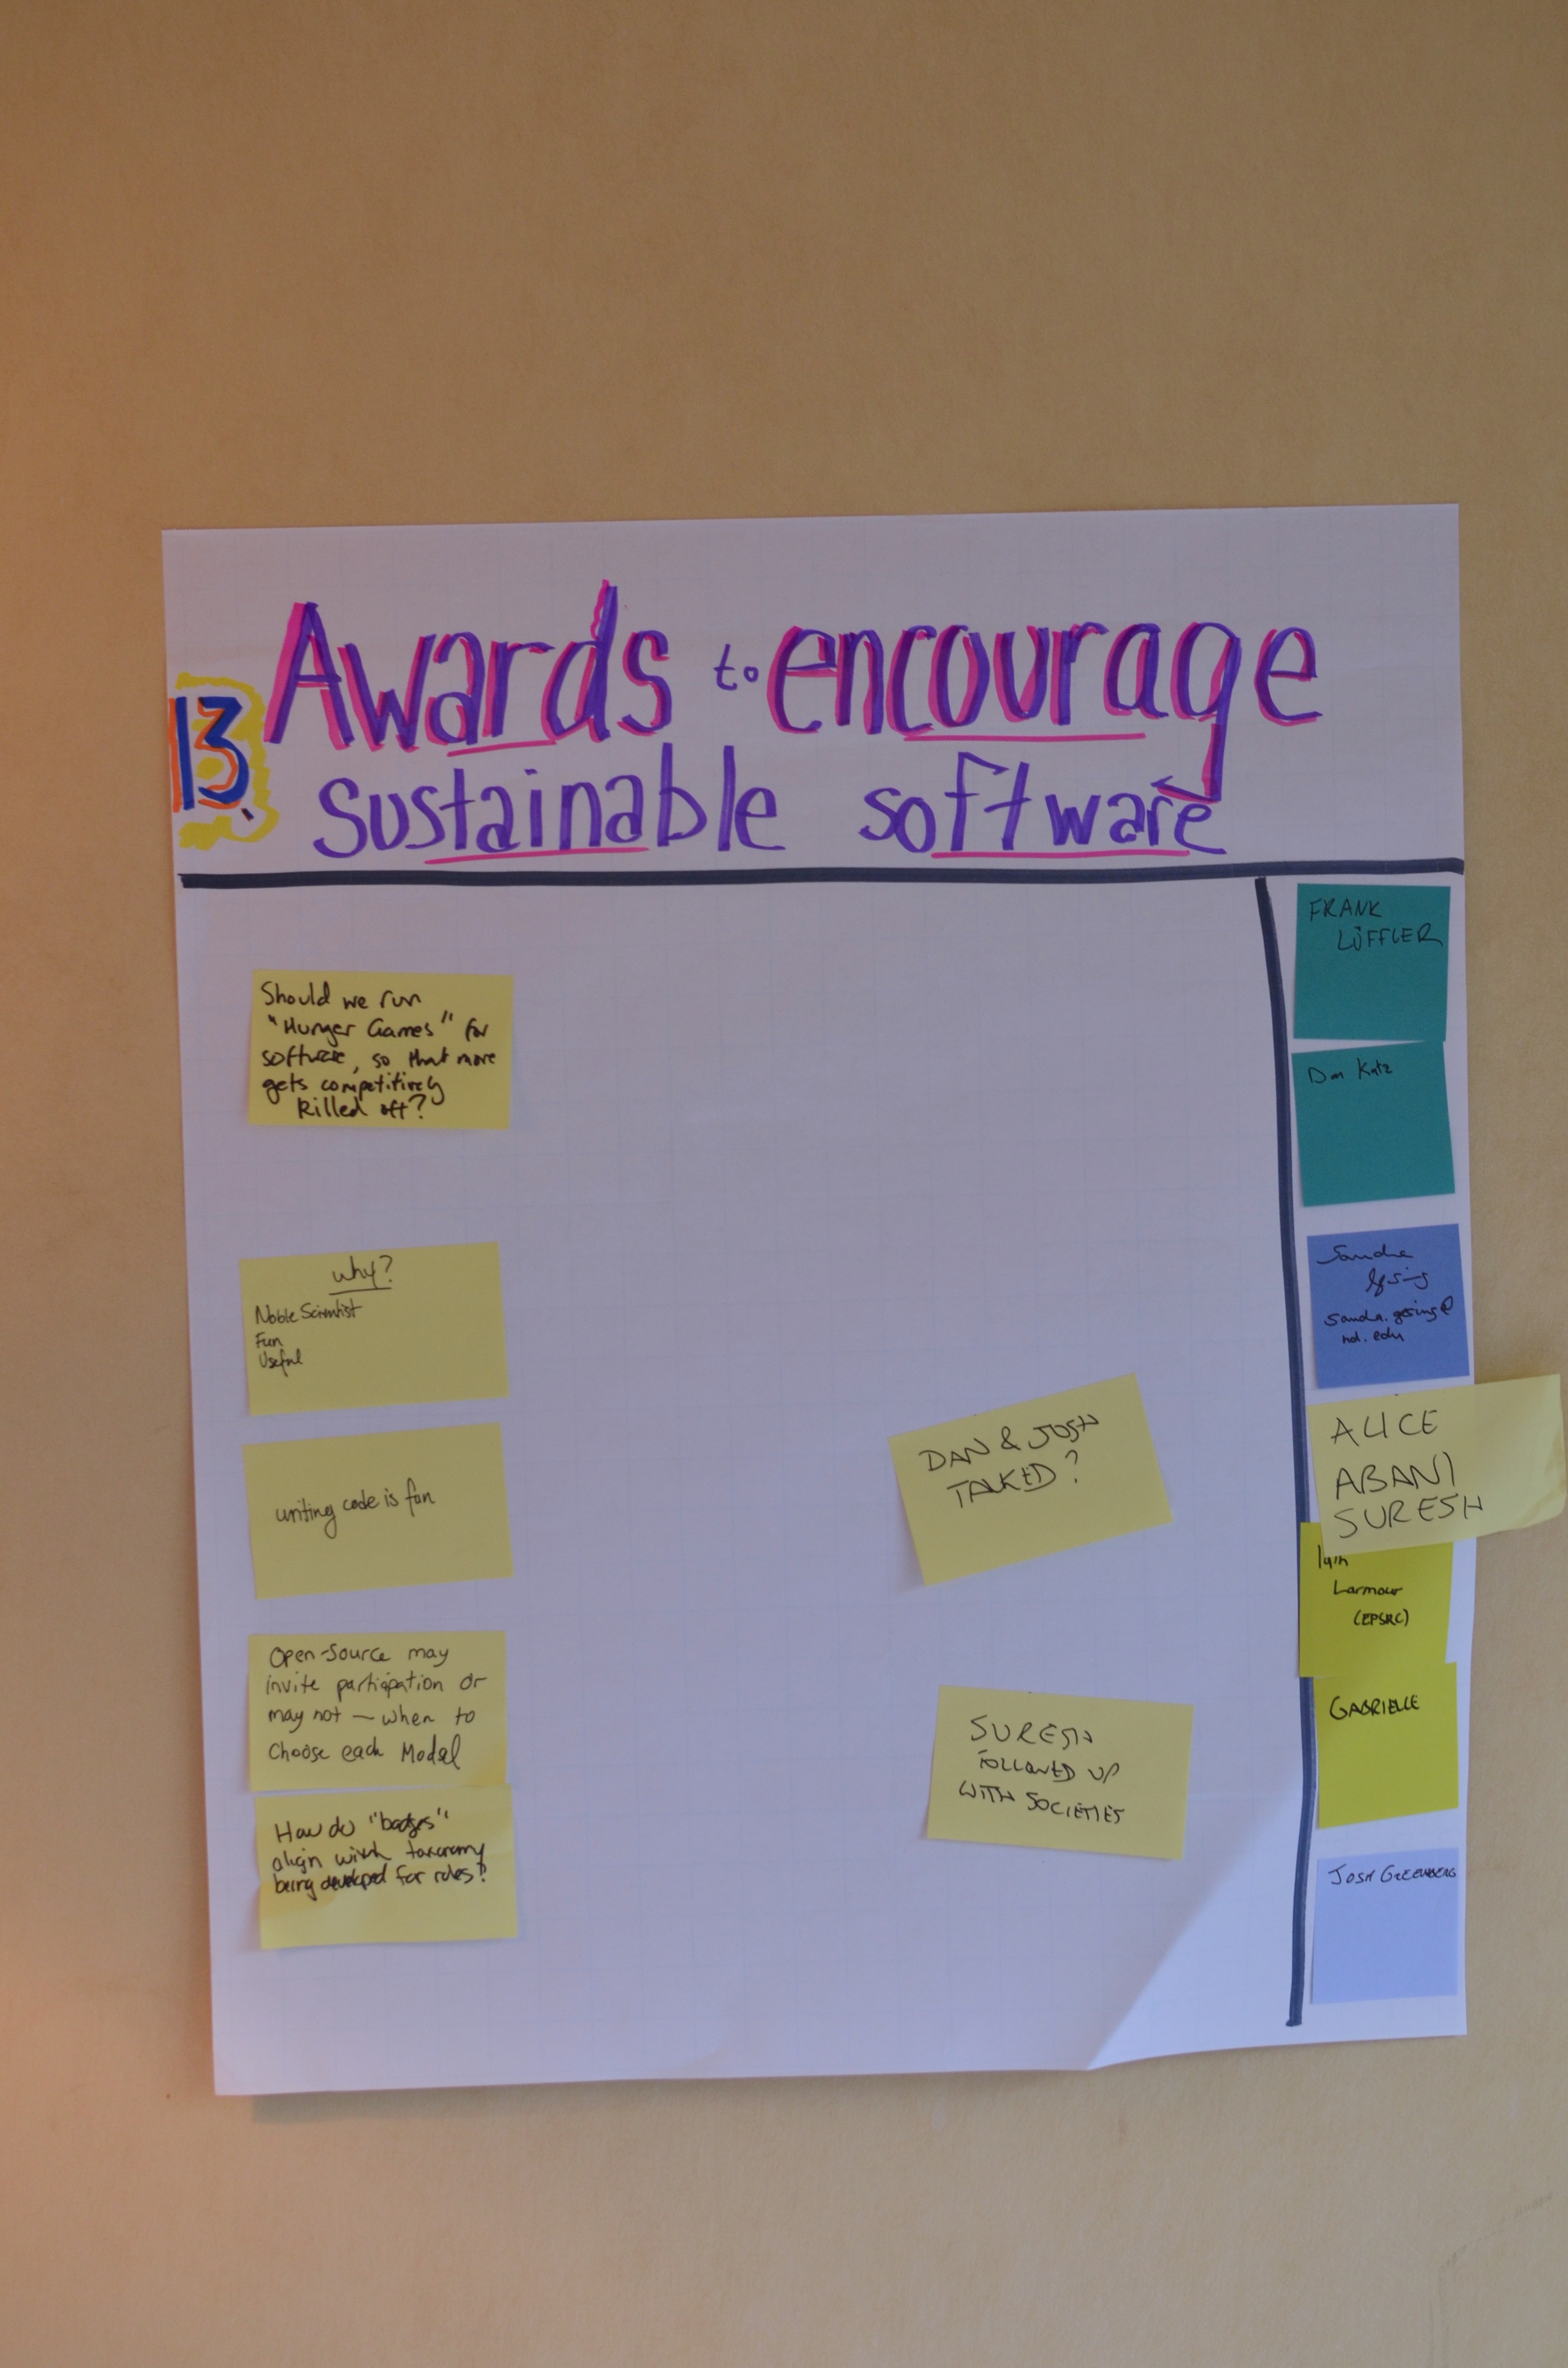 13.
Awards to encourage
sustainable software
Should we run
"Hunger Games" for
software, so that more
gets competitively
killed off?
Why?
Noble Scientist
Fun
Useful
writing code is fun
Open-Source may
invite participation or
may not — when to
choose each Model
How do "badges"
align with taxonomy
being developed for roles?
DAN & JOSH
TALKED?
SURESH
FOLLOWED UP
WITH SOCIETIES
FRANK
LÖFFLER
Dan Katz
Sandra
Gesing
sandra.gesing@
nd.edu
ALICE
ABANI
SURESH
Iain
Larmour
(EPSRC)
GABRIELLE
JOSH GREENBERG